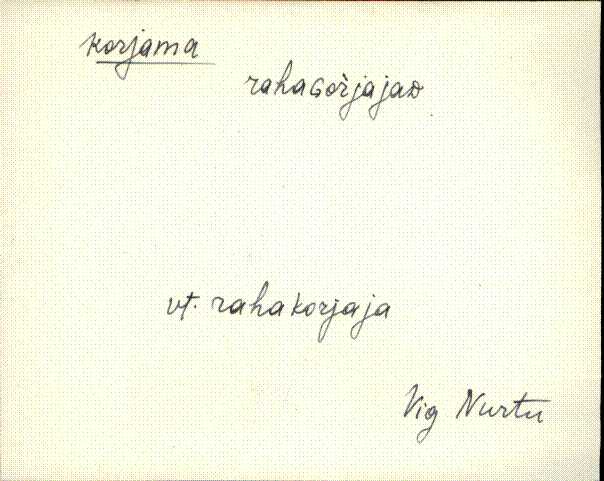 korjama
rahaGoŕjajaD
vt. rahakorjaja
Vig Nurtu